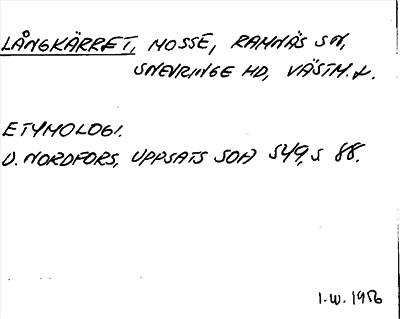 LÅNGKÄRRET, MOSSE, RAMNÄS SN,
SNEVRINGE HD, VÄSTM. L.
ETYMOLOGI.
U. NORDFORS, UPPSATS SOH 549, S 88.
I.W. 1956